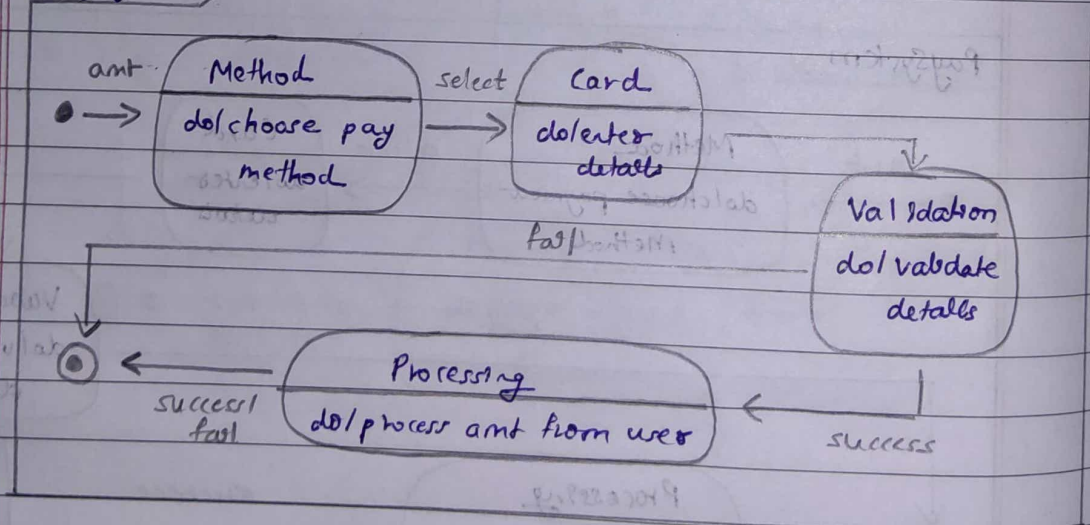 amt
Method
do/choose pay
method
select
Card
do/enter
details
Validation
do/validate
details
fail
Processing
do/process amt from user
success/
fail
success